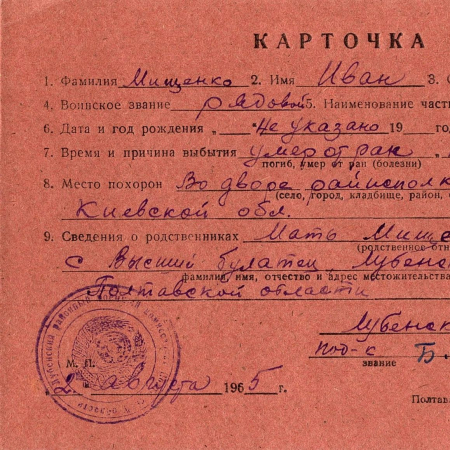 КАРТОЧКА
1. Фамилия Мищенко 2. Имя Иван 3.
4. Воинское звание рядовой 5. Наименование част
6. Дата и год рождения „ “ Не указано 19 го
7. Время и причина выбытия умер от ран „
погиб, умер от ран (болезни)
8. Место похорон Во дворе райисполк
(село, город, кладбище, район,
Киевской обл.
9. Сведения о родственниках Мать Мище
(родственное отн
с Высший Булатец Лубенс
фамилия, имя, отчество и адрес местожительства
Полтавской области
Лубенск
М. П.
под-с Б.
звание
2 августа 1965 г.
Полтав